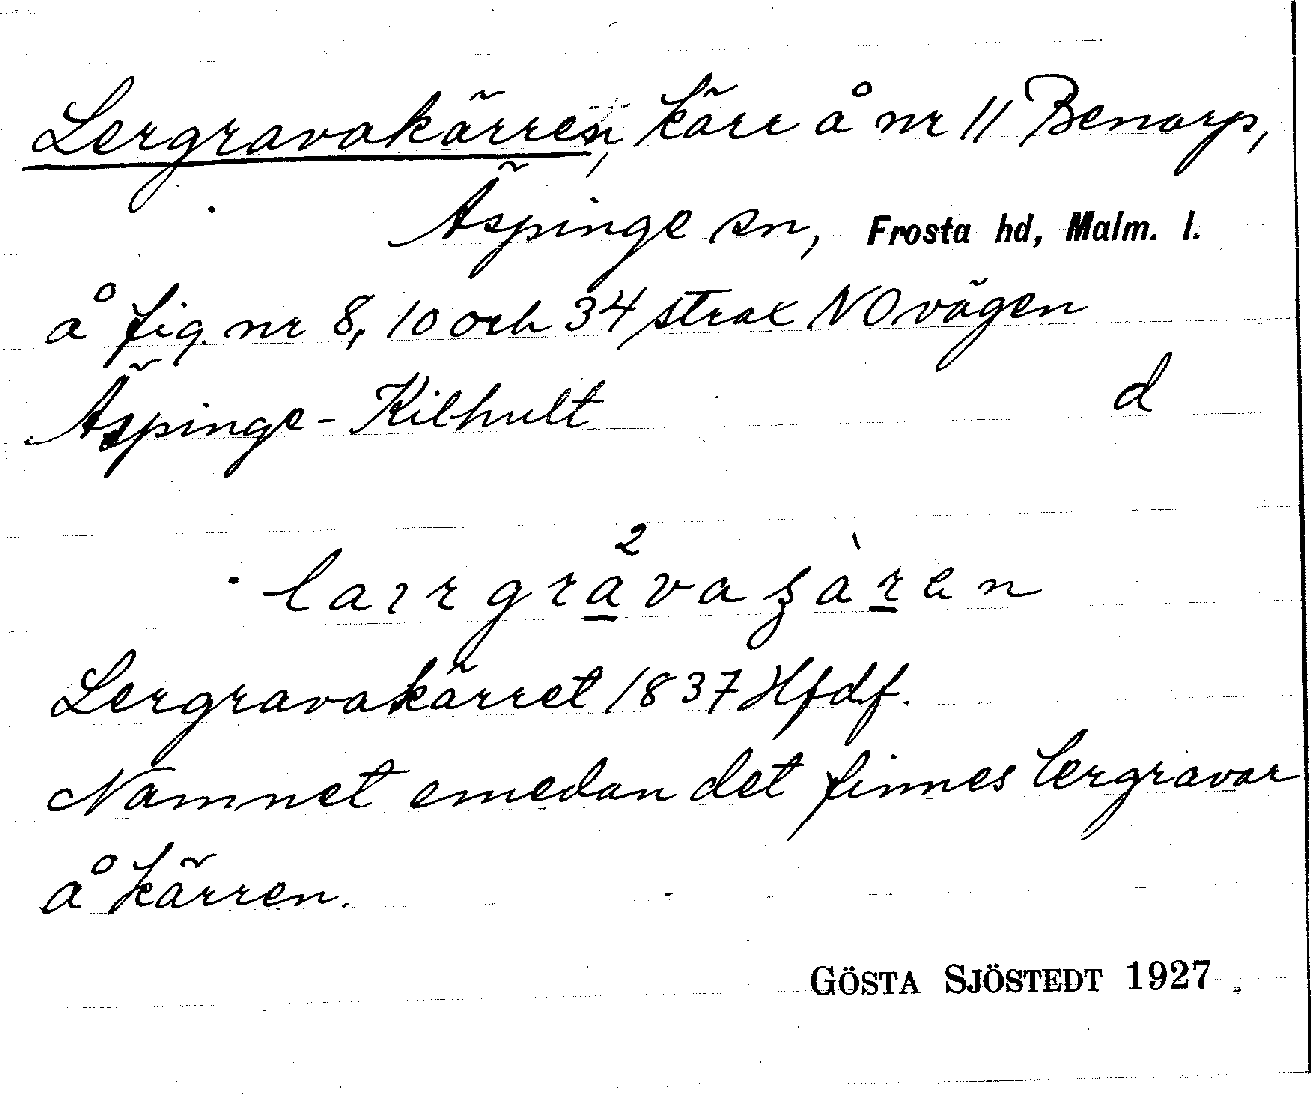 Lergravakärren, kärr å nr 11 Benarp,
Äspinge sn, Frosta hd, Malm. l.
å fig nr 8, 10 och 34 strax NO vägen
Äspinge - Kilhult d
Lergravakärret 1837 Hfdf.
Namnet emedan det finnes lergravar
å kärren.
GÖSTA SJÖSTEDT 1927